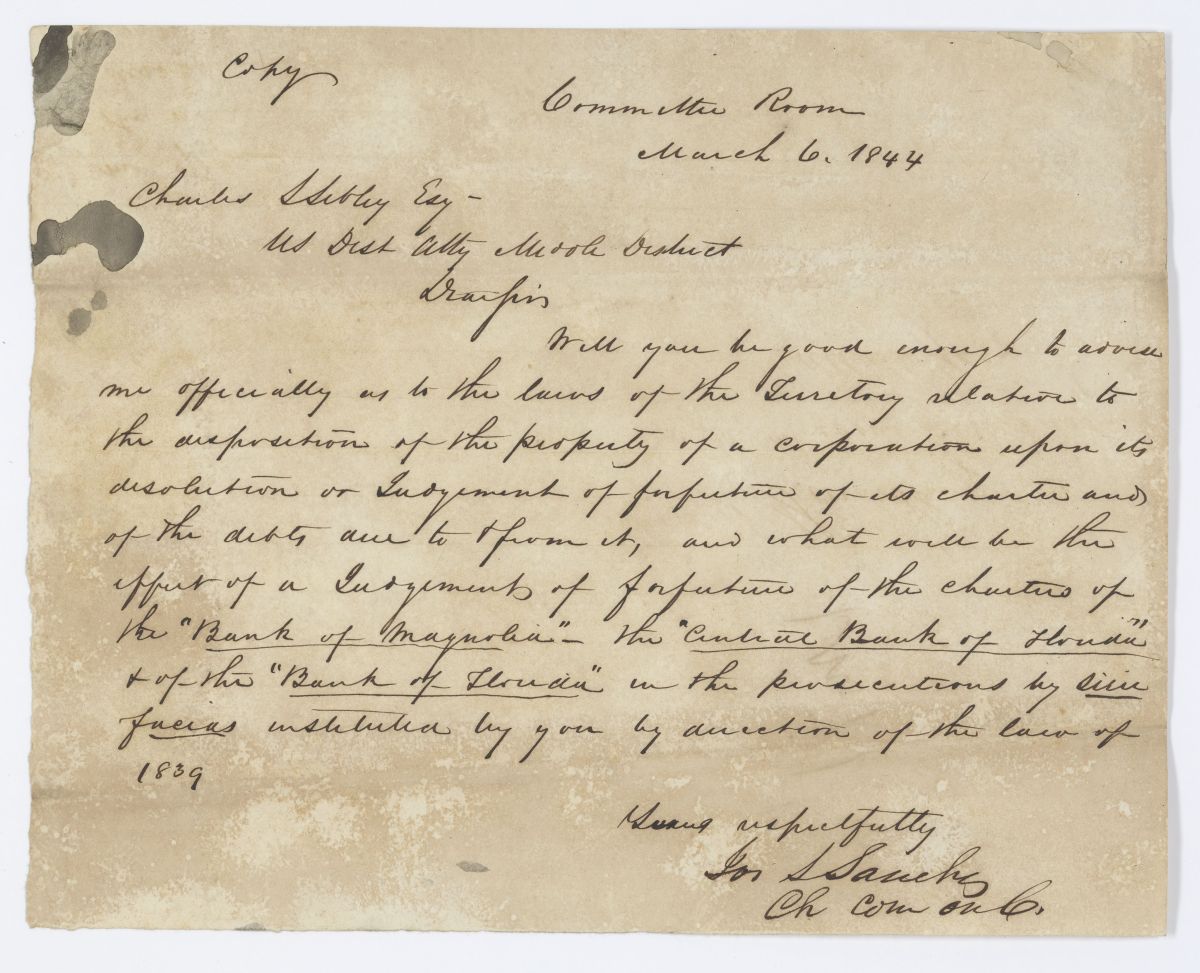 Copy
Committee Room
March 6. 1844
Charles S Sibley Esq -
US Dist Atty Middle District
Dear Sir
Will you be good enough to advise
me officially as to the laws of the Territory relative to
the disposition of the property of a corporation upon its
disolution or Judgement of forfeiture of its charter and
of the debts due to & from it, and what will be the
effect of a Judgement of forfeiture of the charters of
the "Bank of Magnolia" - the "Central Bank of Florida"
& of the "Bank of Florida" in the prosecutions by scire
facias instituted by you by direction of the law of
1839
Yours respectfully
Jos S Sanchez
Ch Com on C.